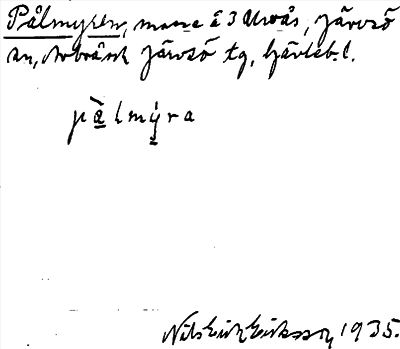 Pålmyren, mosse å 3 Uvås, Järvsö
sn, Arbrå och Järvsö tg, Gävleb. l.
på̀lmýra
Nils Erik Eriksson, 1935.